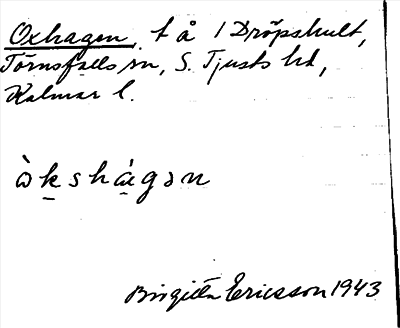 Oxhagen, t å 1 Dröpshult,
Törnsfalls sn, S. Tjusts hd,
Kalmar l.
òkshágən
Birgitta Ericsson 1943